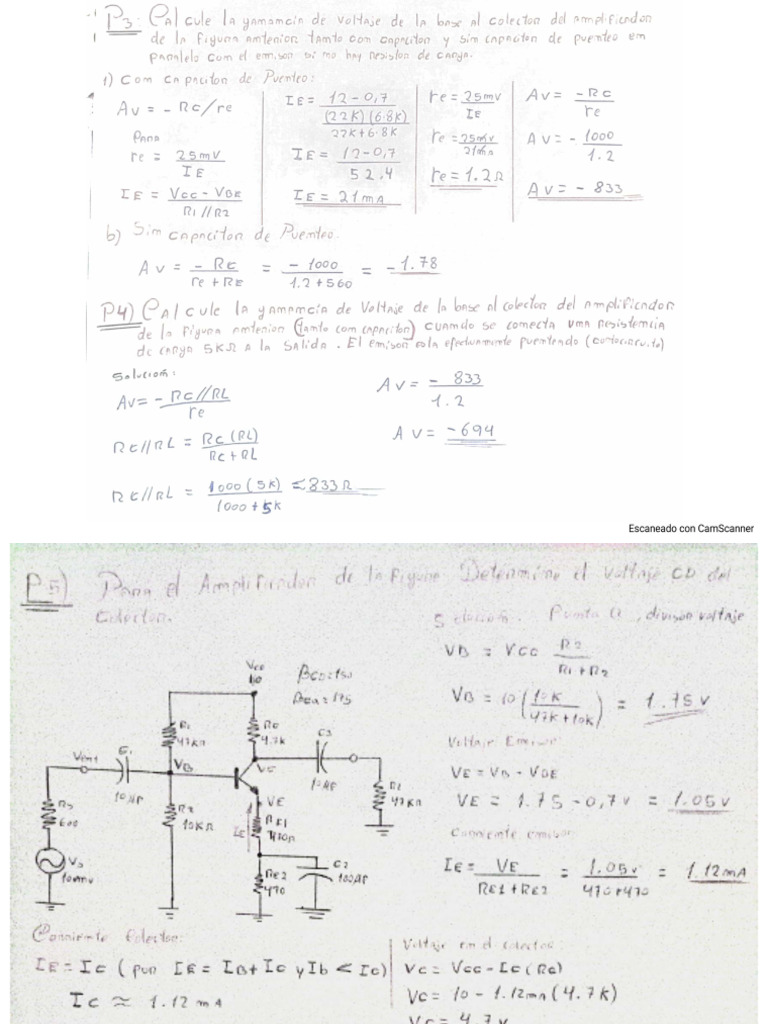 P3: Calcule la ganancia de voltaje de la base al colector del amplificador
de la figura anterior tanto con capacitor y sin capacitor de puenteo en
paralelo con el emisor si no hay resistor de carga.
1) Con capacitor de Puenteo:
Av = - Rc/re
Para
re = 25mV / IE
IE = Vcc - VBE / R1//R2
IE = 12-0,7 / (22K)(6.8K) / 22K+6.8K
IE = 12-0,7 / 52.4
IE = 21mA
re = 25mV / IE
re = 25mV / 21mA
re = 1.2Ω
Av = -Rc / re
Av = - 1000 / 1.2
Av = - 833
b) Sin capacitor de Puenteo.
Av = -Rc / re + RE = - 1000 / 1.2 + 560 = - 1.78
P4) Calcule la ganancia de Voltaje de la base al colector del amplificador
de la figura anterior (tanto con capacitor) cuando se conecta una resistencia
de carga 5KΩ a la salida. El emisor esta efectivamente puenteado (cortocircuito)
Solucion:
Av = - Rc//RL / re
Rc//RL = Rc (RL) / Rc + RL
Rc//RL = 1000 (5K) / 1000 + 5K ≃ 833Ω
Av = - 833 / 1.2
Av = -694
Escaneado con CamScanner
P5) Para el Amplificador de la figura Determine el voltaje CD del
colector.
Solucion. Punto Q, divisor voltaje
VB = Vcc R2 / R1+R2
VB = 10 (10K / 47K+10K) = 1.75 v
Voltaje Emisor
VE = VB - VBE
VE = 1.75 - 0,7v = 1.05v
Corriente emisor
IE = VE / RE1 + RE2 = 1.05v / 470+470 = 1.12mA
Vcc
10
βCD=150
βCA=175
R1
47KΩ
Rc
4.7K
C3
10μF
VC
RL
47KΩ
Vent
C1
10μF
VB
Rs
600
Vs
10mV
R2
10KΩ
VE
IE
RE1
470Ω
RE2
470
C2
100μF
Corriente Colector:
IE = Ic (por IE = IB + Ic y Ib < Ic)
Ic ≈ 1.12 mA
Voltaje en el colector:
Vc = Vcc - Ic (Rc)
Vc = 10 - 1.12mA (4.7K)
Vc = 4.7v